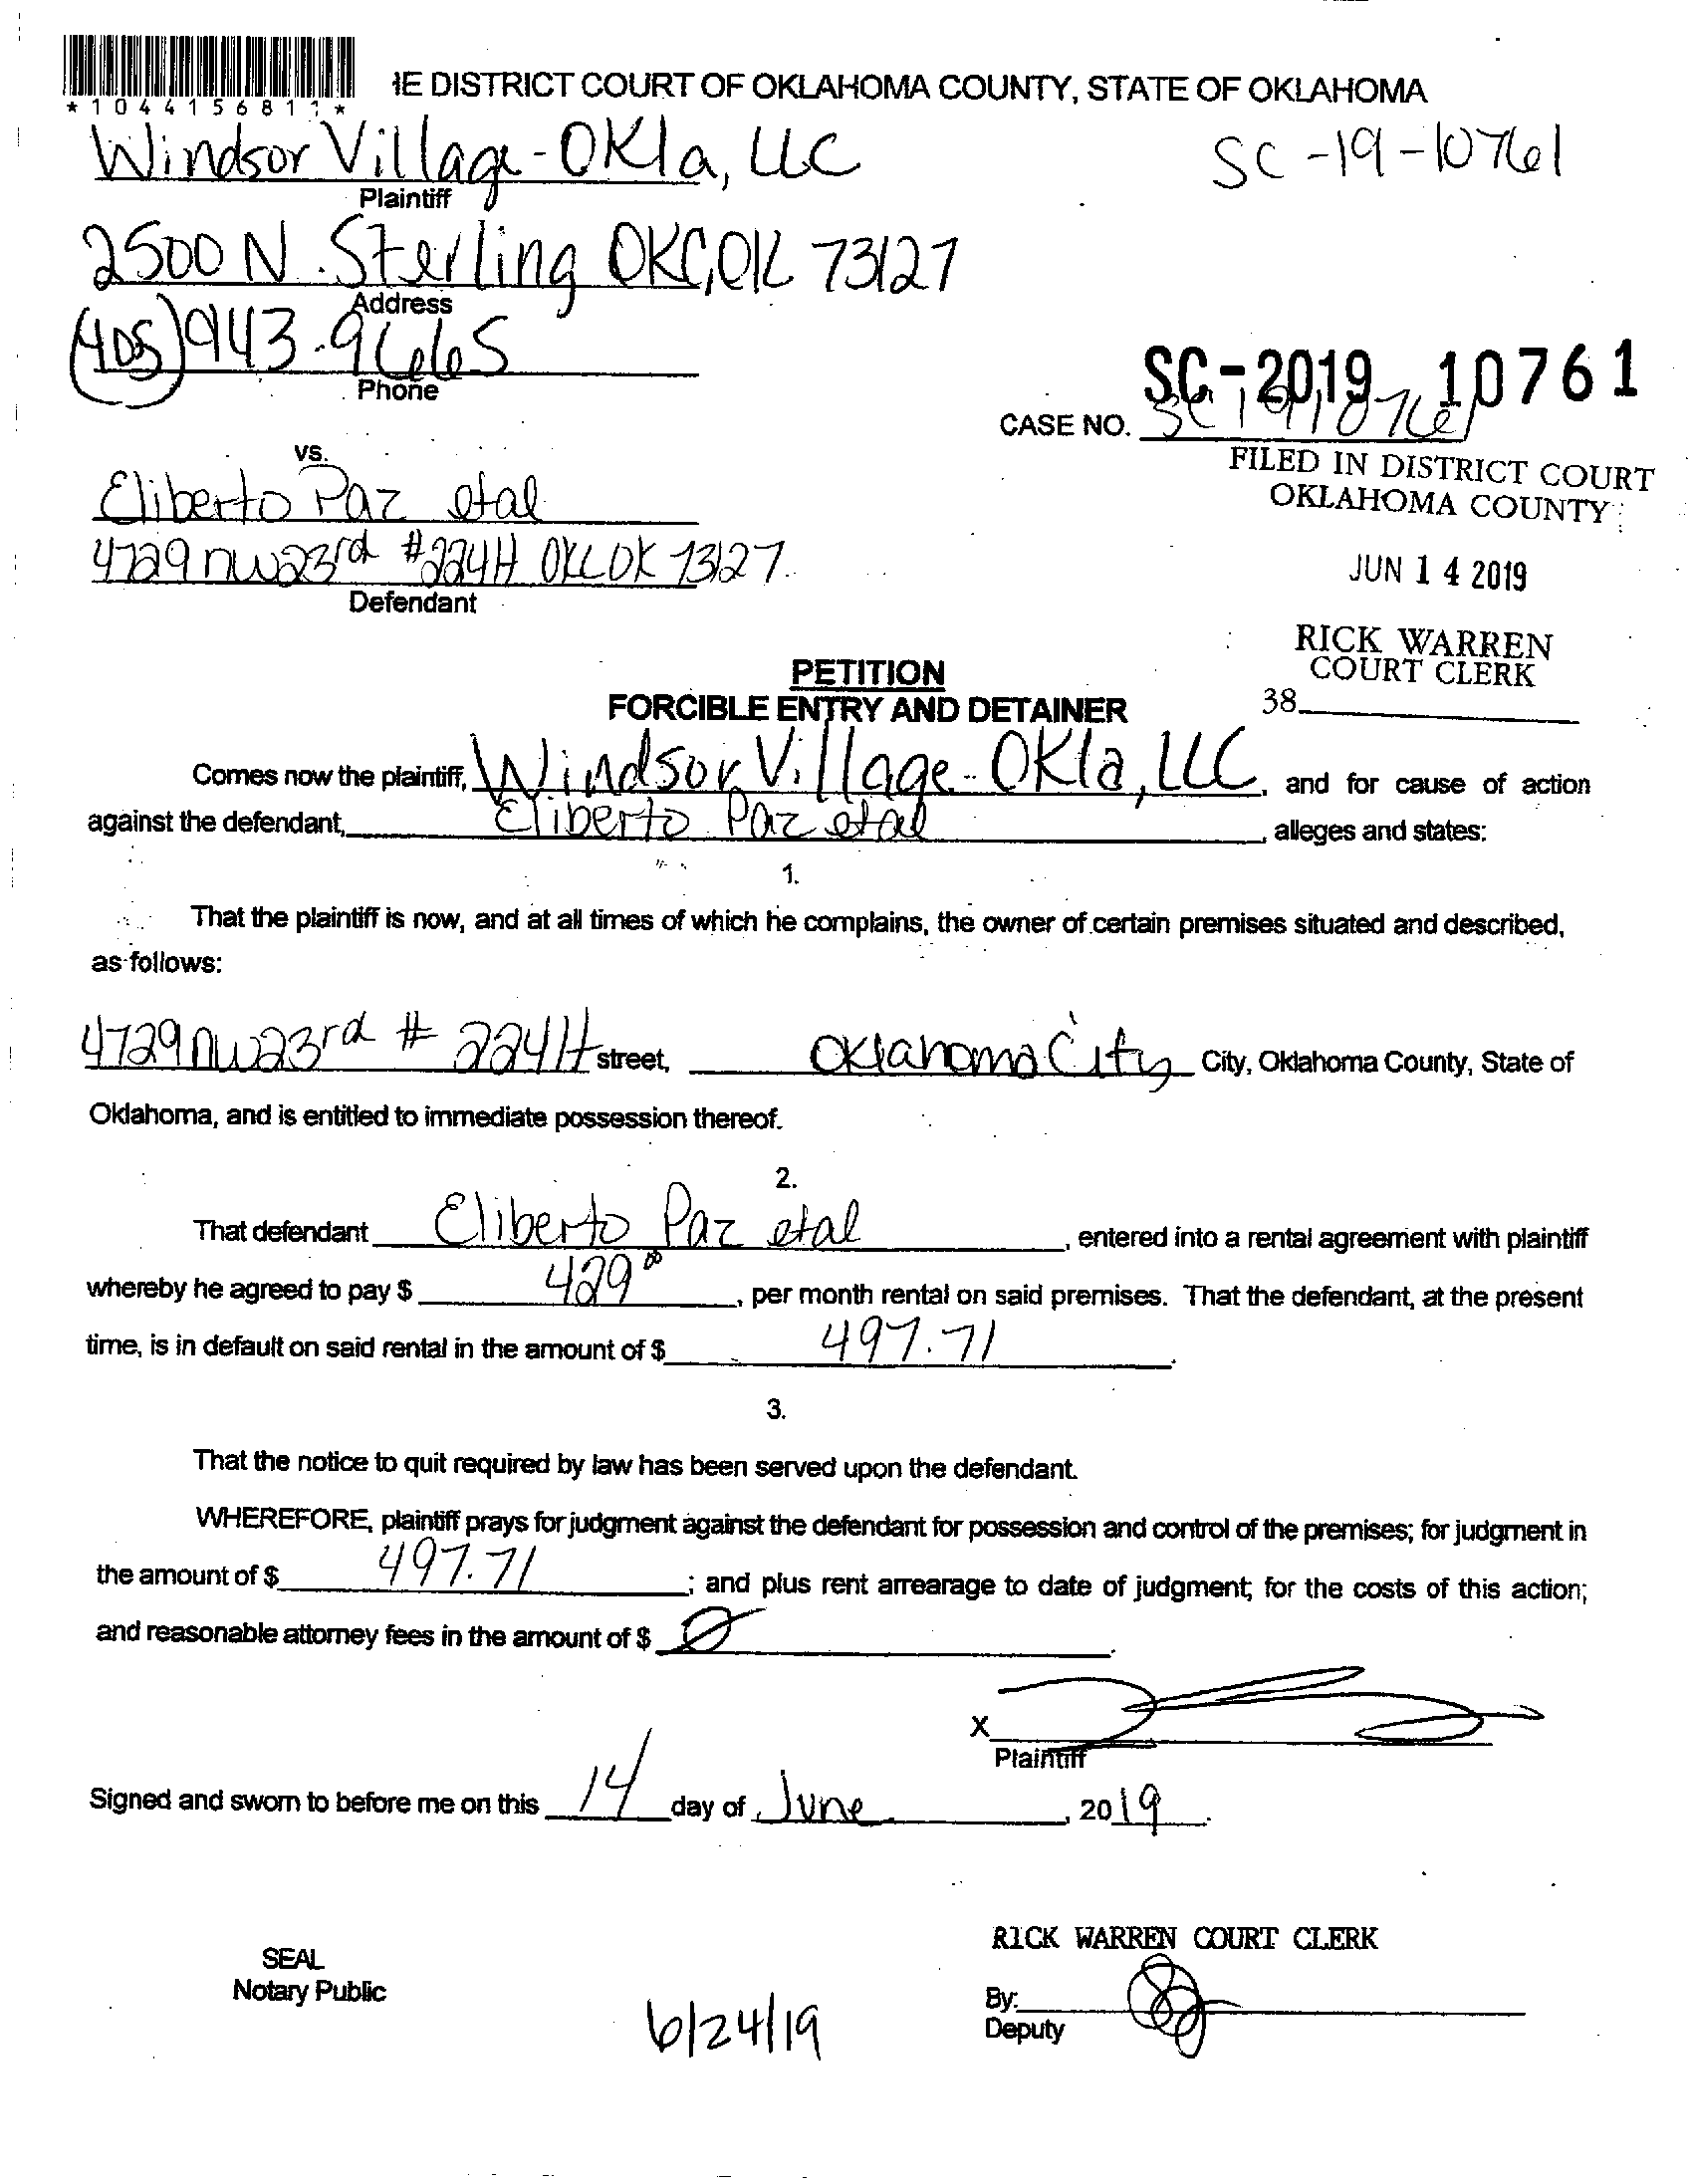 *1044156811*
HE DISTRICT COURT OF OKLAHOMA COUNTY, STATE OF OKLAHOMA
Windsor Village-Okla, LLC
SC-19-10761
Plaintiff
2500 N. Sterling OKC, OK 73127
Address
(405) 943-9665
Phone
SC-2019 10761
CASE NO. SC1910761
vs.
FILED IN DISTRICT COURT
OKLAHOMA COUNTY
Eliberto Paz etal
4729 nw 23rd #224H OKC OK 73127
JUN 14 2019
Defendant
RICK WARREN
COURT CLERK
38
PETITION
FORCIBLE ENTRY AND DETAINER
Comes now the plaintiff, Windsor Village-Okla, LLC, and for cause of action
against the defendant, Eliberto Paz etal, alleges and states:
1.
That the plaintiff is now, and at all times of which he complains, the owner of certain premises situated and described,
as follows:
4729 nw 23rd # 224H street, Oklahoma City City, Oklahoma County, State of
Oklahoma, and is entitled to immediate possession thereof.
2.
That defendant Eliberto Paz etal, entered into a rental agreement with plaintiff
whereby he agreed to pay $ 429 00, per month rental on said premises. That the defendant, at the present
time, is in default on said rental in the amount of $ 497.71.
3.
That the notice to quit required by law has been served upon the defendant.
WHEREFORE, plaintiff prays for judgment against the defendant for possession and control of the premises; for judgment in
the amount of $ 497.71; and plus rent arrearage to date of judgment; for the costs of this action;
and reasonable attorney fees in the amount of $ Ø.
X
Plaintiff
Signed and sworn to before me on this 14 day of June, 2019.
RICK WARREN COURT CLERK
SEAL
Notary Public
By:
Deputy
6/24/19